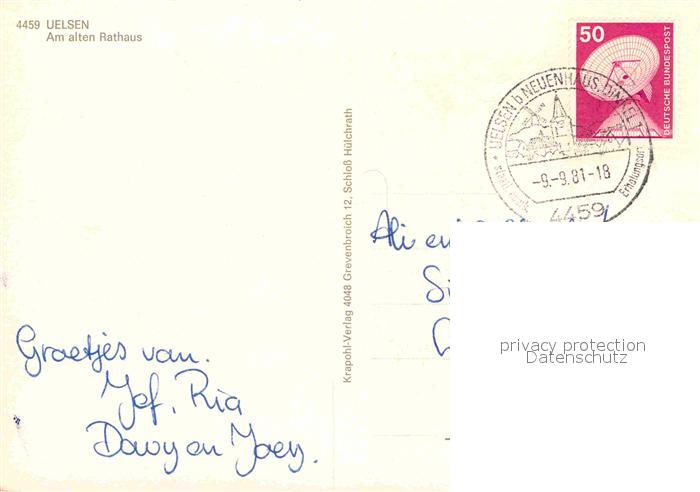 4459 UELSEN
Am alten Rathaus
50
DEUTSCHE BUNDESPOST
UELSEN b NEUENHAUS, DINKEL 1
staatl. anerk. Erholungsort
-9.-9.81-18
4459
Krapohl-Verlag 4048 Grevenbroich 12, Schloß Hülchrath
Ali en
privacy protection
Datenschutz
Groetjes van.
Jef, Ria
Davy en Joey.